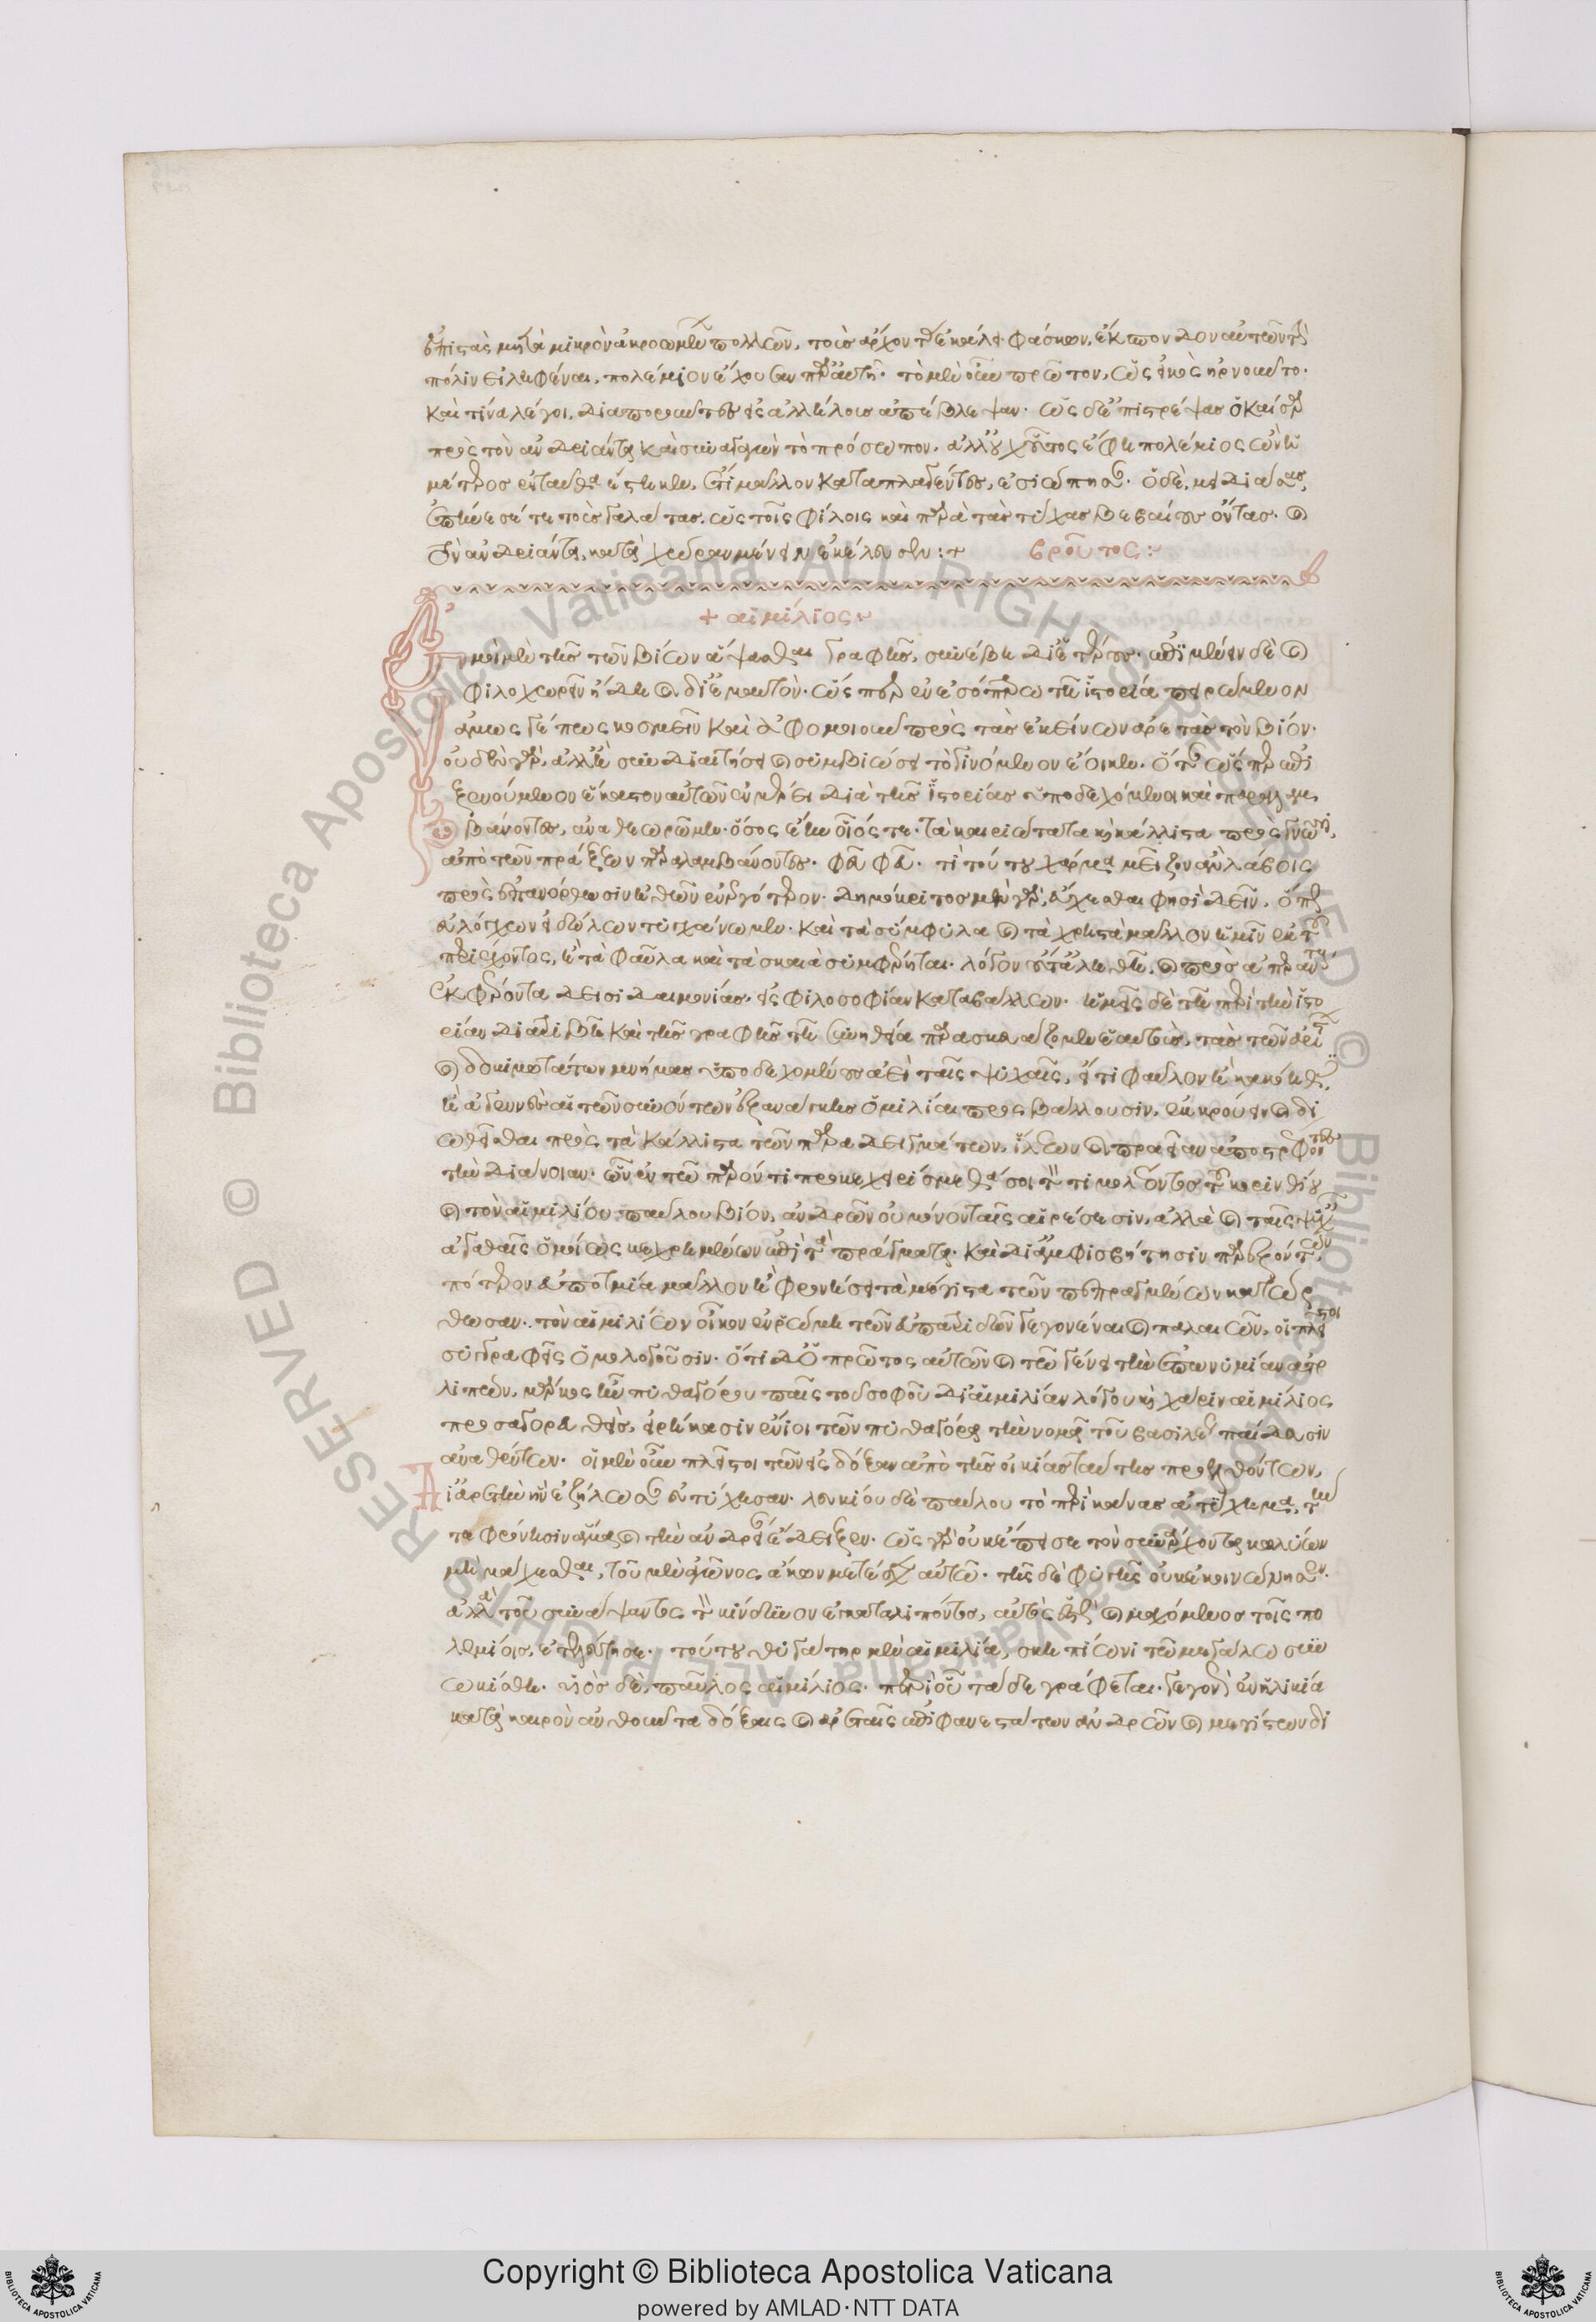 ἐπιστὰς μετὰ μικρὸν ἀκροωμένων πολλῶν, τοὺς ἄρχοντας ἐκάλει φάσκων, ἔκσπονδον αὐτῶν τὴν
πόλιν εἰληφέναι, πολέμιον ἔχουσαν παρ' αὐτῇ. τὸ μὲν οὖν πρῶτον, ὡς εἰκὸς ἠρνοῦντο.
καὶ τίνα λέγοι, διαποροῦντες εἰς ἀλλήλους ἀπέβλεψαν. ὡς δ' ἐπιστρέψας ὁ Καῖσαρ
πρὸς τὸν ἀνδριάντα καὶ συναγαγὼν τὸ πρόσωπον, ἀλλ' οὐχ οὗτος ἔφη πολέμιος ὢν ἡ
μέτερος ἐνταῦθα ἕστηκεν, ἔτι μᾶλλον καταπλαγέντες, ἐσιώπησαν. ὁ δὲ, μειδιάσας,
ἐπῄνεσέ τε τοὺς γαλάτας, ὡς τοῖς φίλοις καὶ παρὰ τὰς τύχας βεβαίους ὄντας. καὶ
τὸν ἀνδριάντα, κατὰ χώραν μένειν ἐκέλευσεν :+ βροῦτος :
+ αἰμίλιος
Ἐμοὶ μὲν τῆς τῶν βίων ἅψασθαι γραφῆς, συνέβη δι' ἑτέρους. ἐπιμένειν δὲ καὶ
φιλοχωρεῖν ἤδη καὶ δι' ἐμαυτὸν. ὥσπερ ἐν ἐσόπτρῳ τῇ ἱστορίᾳ πειρώμενον
ἁμῶς γέ πως κοσμεῖν καὶ ἀφομοιοῦν πρὸς τὰς ἐκείνων ἀρετὰς τὸν βίον.
οὐδὲν γὰρ, ἀλλ' ἢ συνδιαιτήσει καὶ συμβιώσει τὸ γινόμενον ἔοικεν. ὅταν ὥσπερ ἐπι
ξενούμενον ἕκαστον αὐτῶν ἐν μέρει διὰ τῆς ἱστορίας ὑποδεχόμενοι καὶ παραλαμ
βάνοντες, ἀναθεωρῶμεν. ὅσος ἔην οἷός τε. τὰ κυριώτατα καὶ κάλλιστα πρὸς γνῶσιν,
ἀπὸ τῶν πράξεων παραλαμβάνοντες. φεῦ φεῦ. τί τούτου χάρμα μεῖζον ἂν λάβοις
πρὸς ἐπανόρθωσιν ἠθῶν ἐνεργότερον. δημόκριτος μὲν γὰρ, εὔχεσθαι φησὶ δεῖν, ὅπως
εὐλόγχων εἰδώλων τυγχάνωμεν. καὶ τὰ σύμφυλα καὶ τὰ χρηστὰ μᾶλλον ἡμῖν ἐκ τοῦ
περιέχοντος, ἢ τὰ φαῦλα καὶ τὰ σκαιὰ συμφέρηται. λόγον οὔτ' ἀληθῆ, καὶ πρὸς ἀπεράντους
ἐκφέροντα δεισιδαιμονίας, εἰς φιλοσοφίαν καταβάλλων. ἡμεῖς δὲ τῇ περὶ τὴν ἱστο
ρίαν διατριβῇ καὶ τῆς γραφῆς τῇ συνηθείᾳ παρασκευάζομεν ἑαυτοὺς, τὰς τῶν ἀρίστων
καὶ δοκιμωτάτων μνήμας ὑποδεχομένους ἀεὶ ταῖς ψυχαῖς, εἴ τι φαῦλον ἢ κακόηθες
ἢ ἀγεννὲς αἱ τῶν συνόντων ἐξανάγκης ὁμιλίαι προσβάλλουσιν, ἐκκρούειν καὶ δι
ωθεῖσθαι πρὸς τὰ κάλλιστα τῶν παραδειγμάτων, ἵλεων καὶ πραεῖαν ἀποστρέφοντες
τὴν διάνοιαν. ὧν ἐν τῷ παρόντι προκεχειρίσμεθά σοι τὸν τιμολέοντος τοῦ κορινθίου
καὶ τὸν αἰμιλίου παύλου βίον, ἀνδρῶν οὐ μόνον ταῖς αἱρέσεσιν, ἀλλὰ καὶ ταῖς τύχαις
ἀγαθαῖς ὁμοίως κεχρημένων ἐπὶ τὰ πράγματα. καὶ διαμφισβήτησιν παρεξόντων,
πότερον εὐποτμίᾳ μᾶλλον ἢ φρονήσει τὰ μέγιστα τῶν πεπραγμένων κατώρ
θωσαν. τὸν αἰμιλίων οἶκον ἐν ῥώμῃ τῶν εὐπατριδῶν γεγονέναι καὶ παλαιῶν, οἱ πλεῖστοι
συγγραφεῖς ὁμολογοῦσιν. ὅτι δ' ὁ πρῶτος αὐτῶν καὶ τῷ γένει τὴν ἐπωνυμίαν ἀπο
λιπὼν, μάμερκος ἦν πυθαγόρου παῖς τοῦ σοφοῦ δι' αἱμυλίαν λόγου καὶ χάριν αἰμίλιος
προσαγορευθεὶς, εἰρήκασιν ἔνιοι τῶν πυθαγόρᾳ τὴν νομᾶ τοῦ βασιλέως παίδευσιν
ἀναθέντων. οἱ μὲν οὖν πλεῖστοι τῶν εἰς δόξαν ἀπὸ τῆς οἰκίας ταύτης προελθόντων,
δι' ἀρετὴν ἣν ἐζήλωσαν εὐτύχησαν. λευκίου δὲ παύλου τὸ περὶ κάννας ἀτύχημα, τήν
τε φρόνησιν ἅμα καὶ τὴν ἀνδρείαν ἔδειξεν. ὡς γὰρ οὐκ ἔπεισε τὸν συνάρχοντα κωλύων
μὴ μάχεσθαι, τοῦ μὲν ἀγῶνος, ἄκων μετέσχεν αὐτῷ. τῆς δὲ φυγῆς οὐκ ἐκοινώνησεν.
ἀλλὰ τοῦ συνάψαντος τὸν κίνδυνον ἐγκαταλιπόντος, αὐτὸς ἑστὼς καὶ μαχόμενος τοῖς πο
λεμίοις, ἐτελεύτησε. τούτου θυγάτηρ μὲν αἰμιλία, σκηπίωνι τῷ μεγάλῳ συν
ῳκίσθη. υἱὸς δὲ, παῦλος αἰμίλιος. περὶ οὗ τάδε γράφεται. γεγονὼς ἐν ἡλικίᾳ
κατὰ καιρὸν ἀνθοῦντα δόξαις καὶ ἀρεταῖς ἐπιφανεστάτων ἀνδρῶν καὶ μεγίστων δι